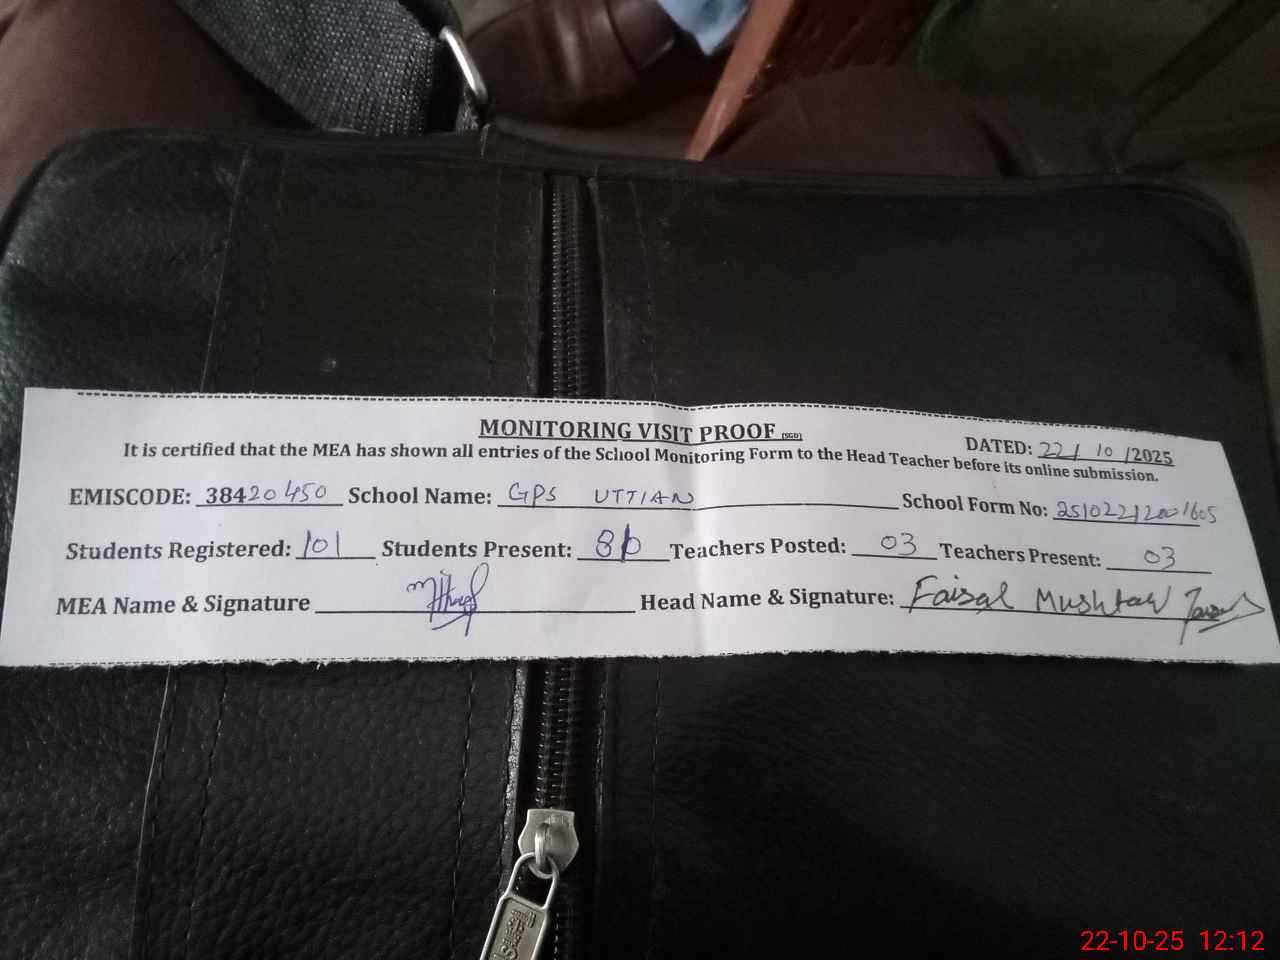 MONITORING VISIT PROOF (SGD)
DATED: 22/10/2025
It is certified that the MEA has shown all entries of the School Monitoring Form to the Head Teacher before its online submission.
EMISCODE: 38420450 School Name: GPS UTTIAN School Form No:
Students Registered: 101 Students Present: Teachers Posted: 03 Teachers Present: 03
MEA Name & Signature Head Name & Signature: Faisal Mushtaq
22-10-25 12:12